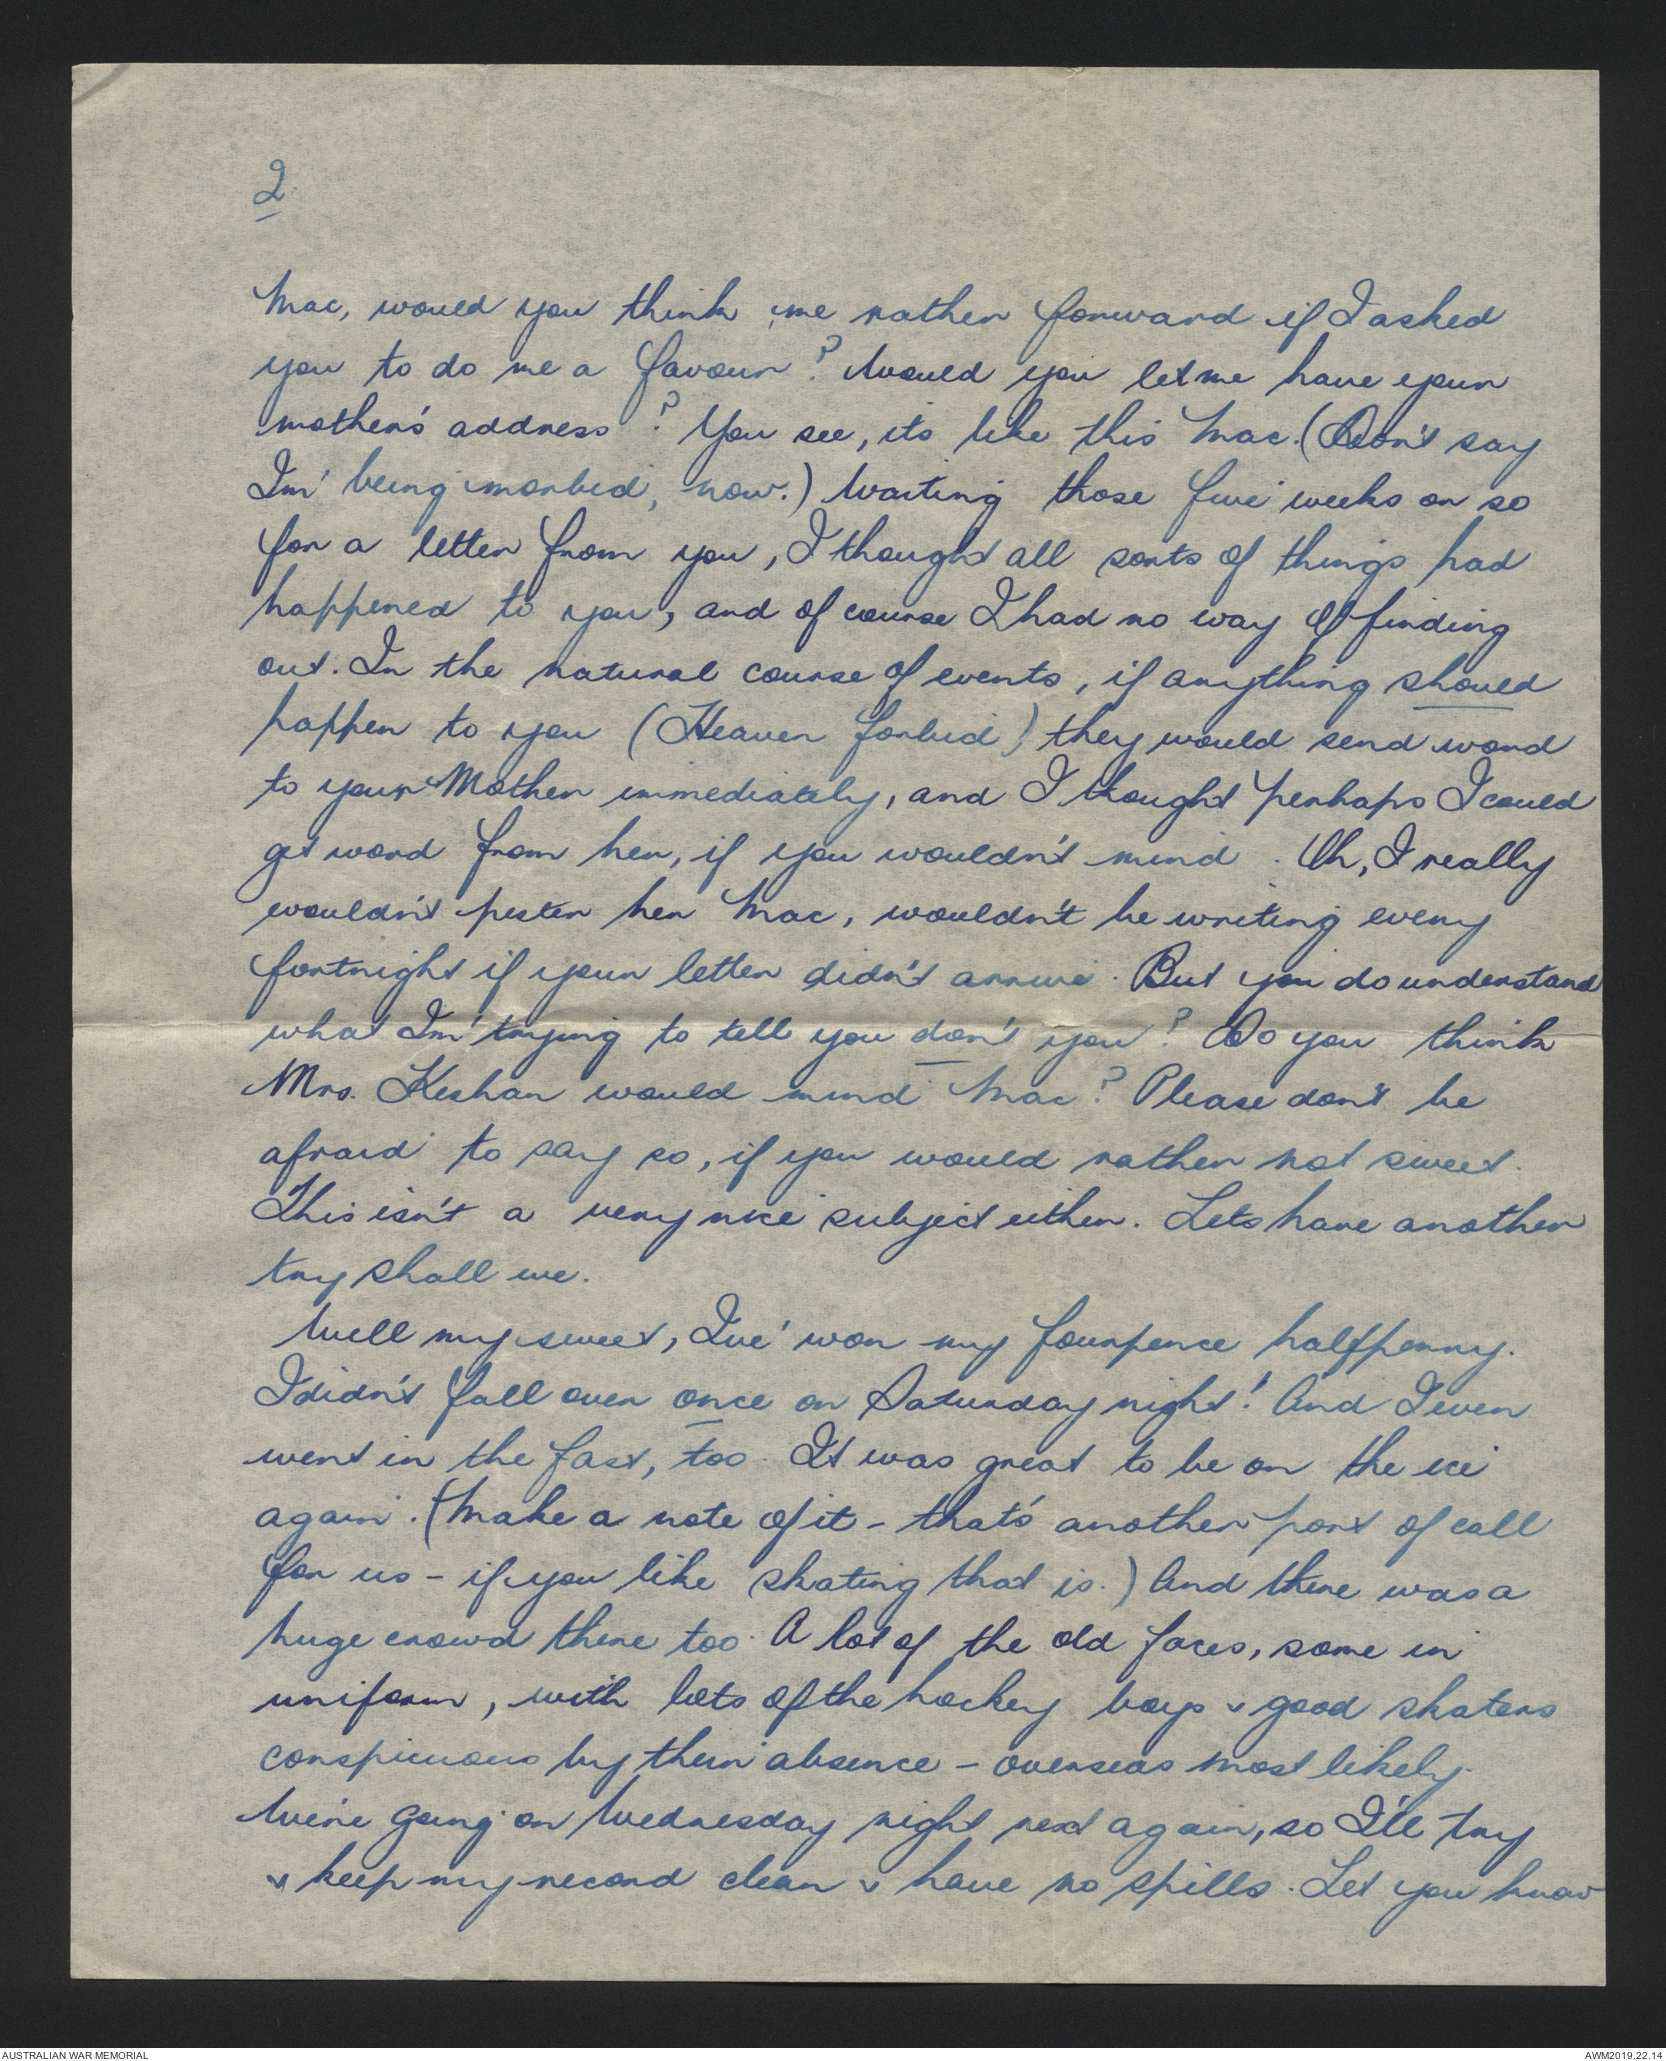 2
Mac, would you think me rather forward if I asked
you to do me a favour? Would you let me have your
mother's address? You see, its like this Mac. (Don't say
Im' being morbid, now.) Waiting those five weeks or so
for a letter from you, I thought all sorts of things had
happened to you, and of course I had no way of finding
out. In the natural course of events, if anything should
happen to you (Heaven forbid) they would send word
to your Mother immediately, and I thought perhaps I could
get word from her, if you wouldn't mind. Oh, I really
wouldn't pester her Mac, wouldn't be writing every
fortnight if your letter didn't arrive. But you do understand
what Im' trying to tell you don't you? Do you think
Mrs. Keshan would mind Mac? Please don't be
afraid to say so, if you would rather not sweet.
This isn't a very nice subject either. Lets have another
try shall we.
Well my sweet, Ive' won my fourpence halfpenny.
I didn't fall over once on Saturday night! And I even
went in the fast, too. It was great to be on the ice
again. (Make a note of it - that's another port of call
for us - if you like skating that is.) And there was a
huge crowd there too. A lot of the old faces, some in
uniform, with lots of the hockey boys & good skaters
conspicuous by their absence - overseas most likely.
We're going on Wednesday night next again, so I'll try
& keep my record clean & have no spills. Let you know
AUSTRALIAN WAR MEMORIAL
AWM2019.22.14